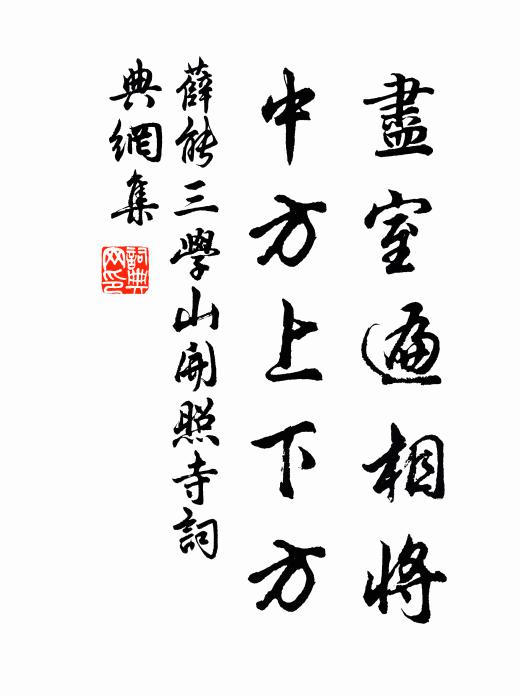 盡室遍相將
中方上下方
薛能三學山開照寺詞
典網集
詞典网印